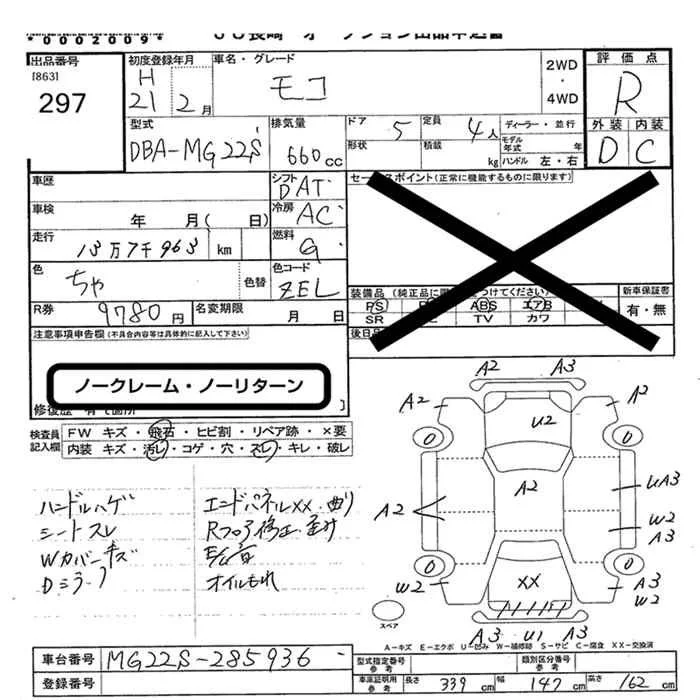 *0002009*
出品番号
[863]
297
初度登録年月
H
21 2月
車名・グレード
モコ
2WD
・
4WD
評価点
R
外装 内装
D C
型式
DBA-MG22S
排気量
660cc
ドア 5
定員 4人
ディーラー・並行
形状
積載 kg
モデル年式 年
ハンドル 左・右
車歴
シフト DAT
車検 年 月( 日)
冷房 AC
走行 13万7千963 km
燃料 G
色 ちゃ 色替
色コード ZEL
R券 9780円
名変期限 月 日
セールスポイント(正常に機能するものに限ります)
装備品
PS ABS エアB
SR TV カワ
新車保証書
有・無
後日品
注意事項申告欄(不具合内容等は具体的に記入して下さい)
ノークレーム・ノーリターン
修復歴 有
検査員記入欄
FW キズ・飛石・ヒビ割・リペア跡・×要
内装 キズ・汚レ・コゲ・穴・スレ・キレ・破レ
ハンドルハゲ
シートスレ
Wカバーキズ
Dミラー
エンドパネルXX・曲り
Rフロア修正・歪み
E/G音
オイルもれ
A2 A3
A2 A2
U2
0 0
A2
A2
UA3
W2
A3
0 0
W2
XX
A3
W2
A3 U1 A3
スペア
A-キズ E-エクボ U-凹み W-補修跡 S-サビ C-腐食 XX-交換済
車台番号 MG22S-285936
登録番号
型式指定番号 参考
類別区分番号 参考
車庫証明用 参考
長さ 339cm 幅 147cm 高さ 162cm